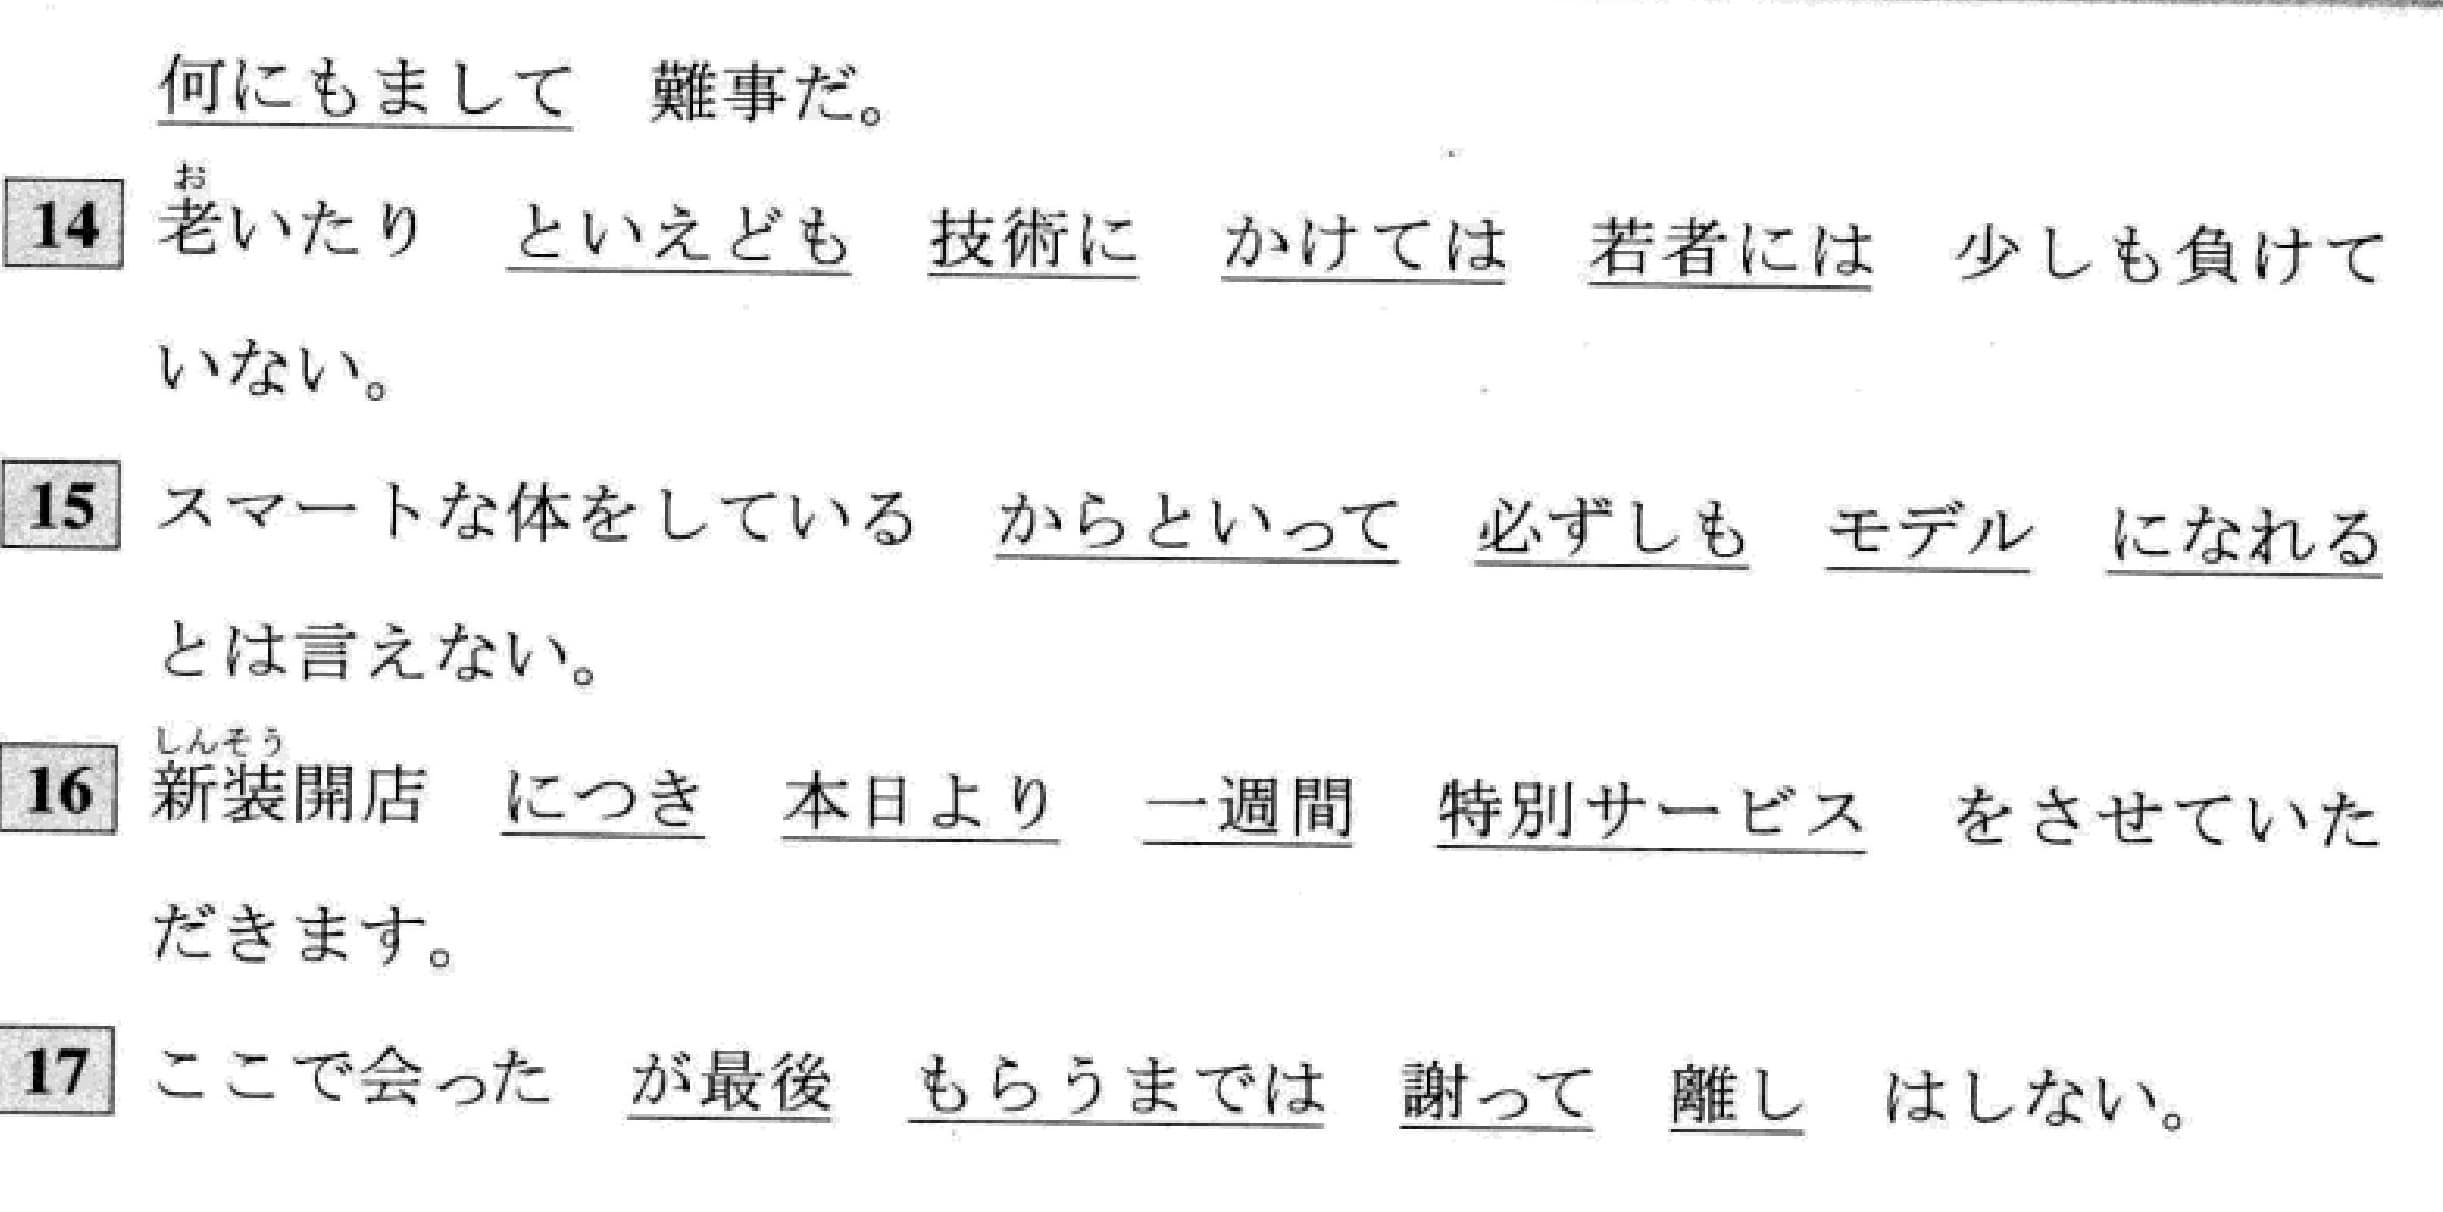 何にもまして 難事だ。
14 老いたり といえども 技術に かけては 若者には 少しも負けて
いない。
15 スマートな体をしている からといって 必ずしも モデル になれる
とは言えない。
16 新装開店 につき 本日より 一週間 特別サービス をさせていた
だきます。
17 ここで会った が最後 もらうまでは 謝って 離し はしない。